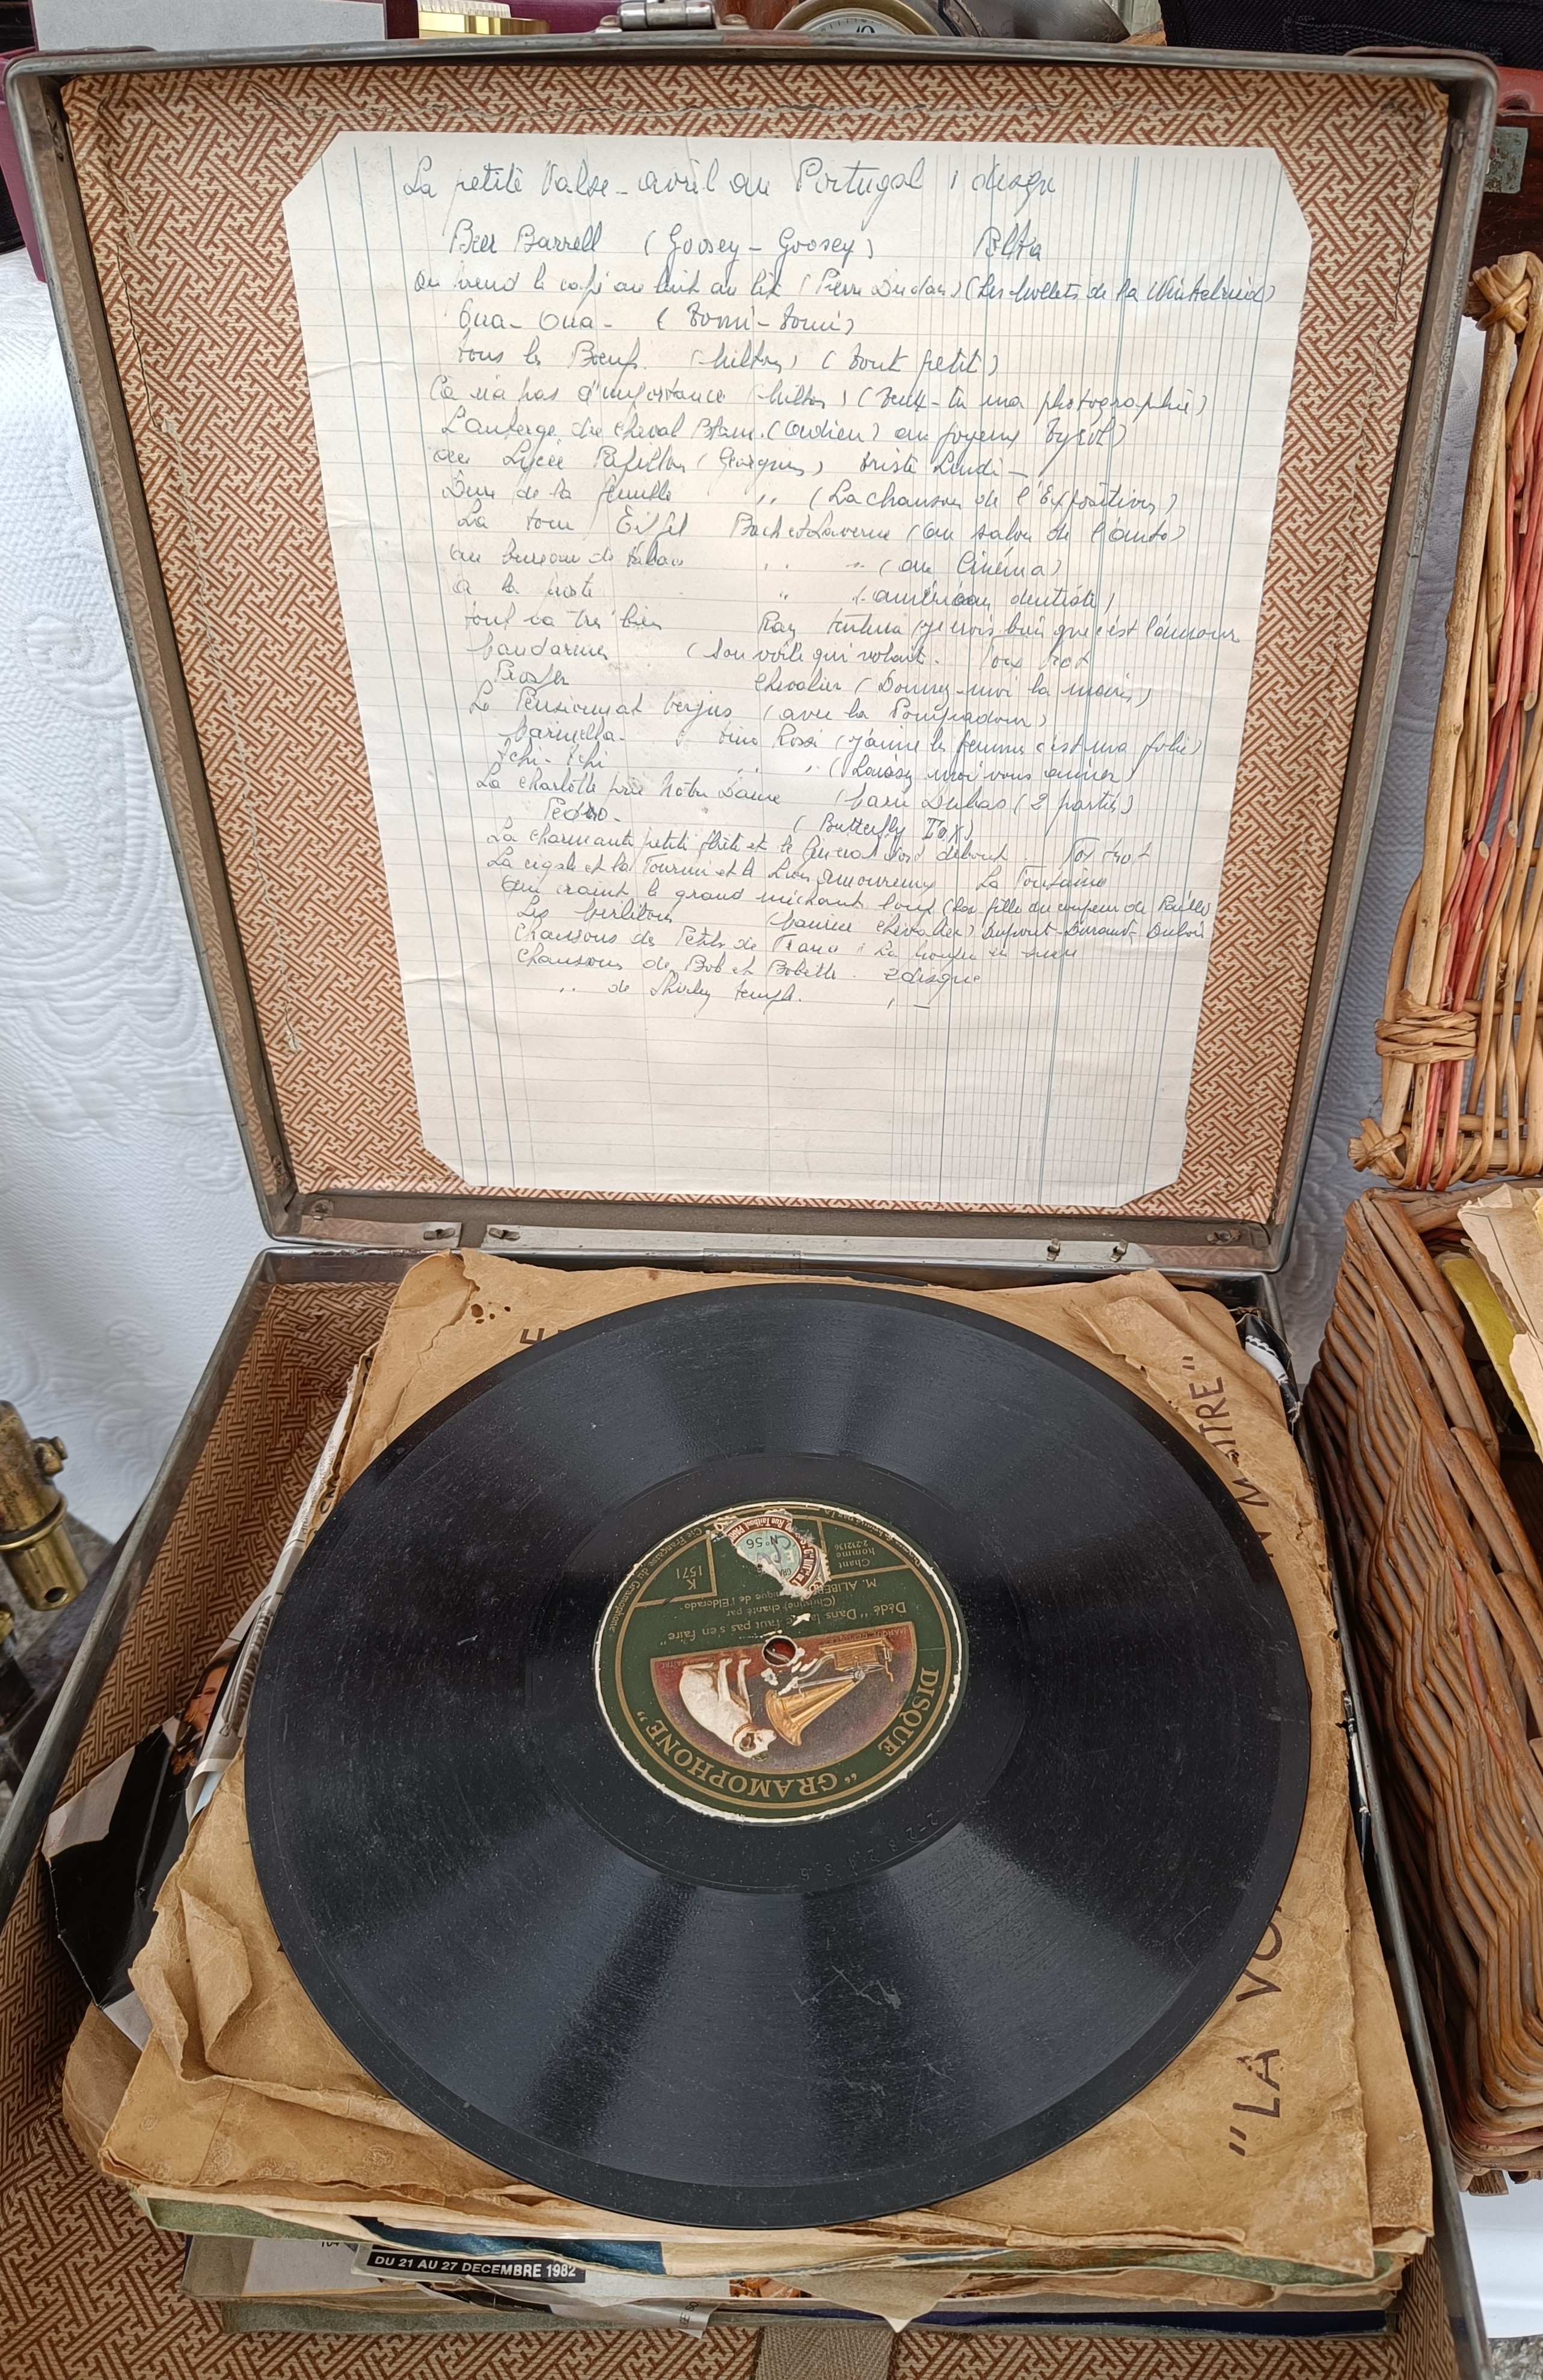 La petite Valse - avril au Portugal 1 disque
Beer Barrell (Goosey - Goosey) Polka
On prend le café au lait au lit (Pierre Dudan) (Les mollets de la
Oua - Oua - (Tomi - Tomi)
tous les Bœufs (Milton) (tout petit)
Ca n'a pas d'importance (Milton) (Veux-tu ma photographie)
L'auberge du cheval Blanc. au joyeux Tyrol)
au Lycée Papillon (Georgius) triste Lundi -
de la famille ,, (La chanson de l'Exposition)
La tour Eiffel Bach et Laverne (au salon de l'auto)
au bureau de tabac ,, ,, (au Cinéma)
a la poste ,, (américan dentiste)
tout va très bien Ray Ventura (je crois bien que c'est l'amour
(Son voile qui volait. Fox trot
Prosper Chevalier (Donnez-moi la main)
Le Pensionnat (avec la Pompadour)
Marinella - Tino Rossi (j'aime les femmes c'est ma folie)
Tchi - tchi ,, ,, (Laissez moi vous aimer)
La charlotte prie Notre Dame (Marie Dubas (2 parties)
Pedro - (Butterfly Fox)
La charmante petite flûte et le dort debout - Fox trot
La cigale et la Fourmi et le Lion Amoureux La Fontaine
Qui craint le grand méchant loup (La fille du coupeur de Paille)
Les mirlitons (Maurice Chevalier) Dupont - Durand - Dubois
Chansons de Petits de France : La poupée en sucre
Chansons de Bob et Bobette. 2 disque
,, de Shirley temple. , -
"LA VO MAITRE"
DISQUE "GRAMOPHONE"
Dédé "Dans la faut pas s'en faire"
(Christiné) chanté par
M. ALIBERT, de l'Eldorado
K
1571
Chant
homme
2-232136
Cie Française du Gramophone
N° 56
DU 21 AU 27 DECEMBRE 1982